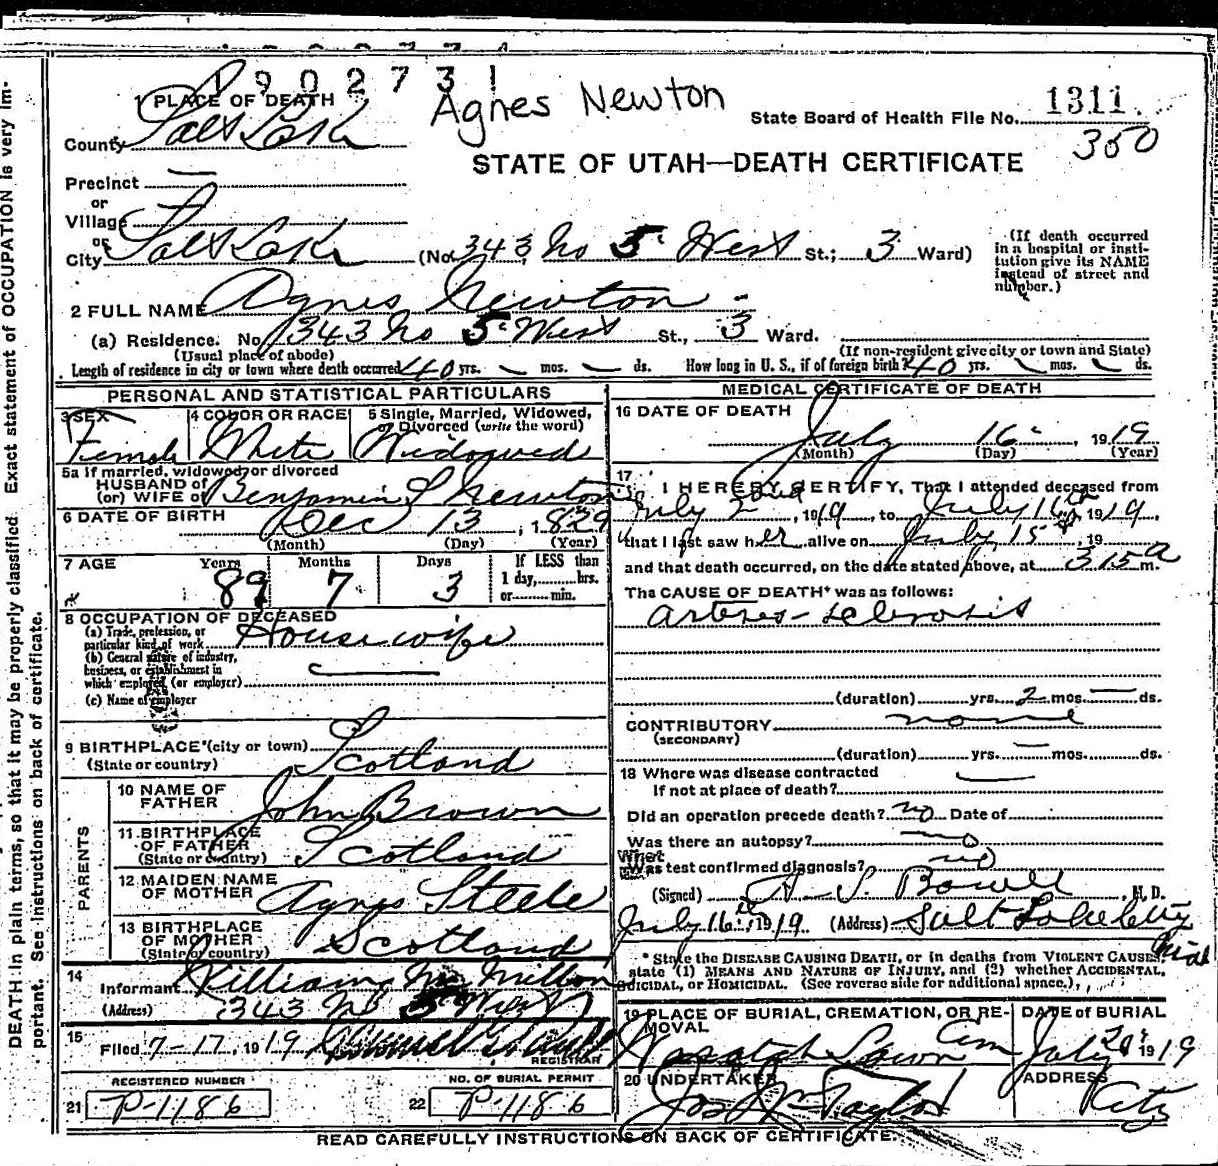 190273 1
1 PLACE OF DEATH
Agnes Newton
State Board of Health File No. 1311
350
County Salt Lake
STATE OF UTAH—DEATH CERTIFICATE
Precinct —
or
Village
or
City Salt Lake (No. 343 No 5 West St.; 3 Ward)
(If death occurred in a hospital or institution give its NAME instead of street and number.)
2 FULL NAME Agnes Newton
(a) Residence. No. 343 No 5 West St., 3 Ward.
(Usual place of abode)
(If non-resident give city or town and State)
Length of residence in city or town where death occurred 40 yrs. — mos. — ds. How long in U. S., if of foreign birth? 40 yrs. — mos. — ds.
PERSONAL AND STATISTICAL PARTICULARS
3 SEX Female
4 COLOR OR RACE White
5 Single, Married, Widowed, or Divorced (write the word) Widowed
5a If married, widowed, or divorced
HUSBAND of
(or) WIFE of Benjamin S Newton
6 DATE OF BIRTH Dec 13, 1829
(Month) (Day) (Year)
7 AGE Years 89 Months 7 Days 3 If LESS than 1 day, hrs. or min.
8 OCCUPATION OF DECEASED
(a) Trade, profession, or particular kind of work Housewife
(b) General nature of industry, business, or establishment in which employed (or employer) —
(c) Name of employer
9 BIRTHPLACE (city or town)
(State or country) Scotland
PARENTS
10 NAME OF FATHER John Brown
11 BIRTHPLACE OF FATHER (State or country) Scotland
12 MAIDEN NAME OF MOTHER Agnes Steele
13 BIRTHPLACE OF MOTHER (State or country) Scotland
14
Informant William Mc Millon
(Address) 343 No 5 West
15
Filed 7-17, 1919
REGISTRAR
REGISTERED NUMBER
21 P-1186
NO. OF BURIAL PERMIT
22 P-1186
MEDICAL CERTIFICATE OF DEATH
16 DATE OF DEATH
July 16, 1919
(Month) (Day) (Year)
17
I HEREBY CERTIFY, That I attended deceased from
July 2nd, 1919, to July 16th, 1919,
that I last saw her alive on July 15th, 19
and that death occurred, on the date stated above, at 315 a m.
The CAUSE OF DEATH* was as follows:
arterio-sclerosis
(duration) yrs. 2 mos. — ds.
CONTRIBUTORY none
(SECONDARY)
(duration) yrs. — mos. ds.
18 Where was disease contracted
If not at place of death? —
Did an operation precede death? no Date of
Was there an autopsy? no
What
Was test confirmed diagnosis? no
(Signed) A. S. Bowell, M. D.
July 16th, 1919 (Address) Salt Lake City
Utah
* State the DISEASE CAUSING DEATH, or in deaths from VIOLENT CAUSES, state (1) MEANS AND NATURE OF INJURY, and (2) whether ACCIDENTAL, SUICIDAL, or HOMICIDAL. (See reverse side for additional space.)
19 PLACE OF BURIAL, CREMATION, OR REMOVAL
Wasatch Lawn Cem
DATE of BURIAL
July 20, 1919
20 UNDERTAKER
Jos Wm Taylor
ADDRESS
City
READ CAREFULLY INSTRUCTIONS ON BACK OF CERTIFICATE.
DEATH in plain terms, so that it may be properly classified. Exact statement of OCCUPATION is very important. See instructions on back of certificate.